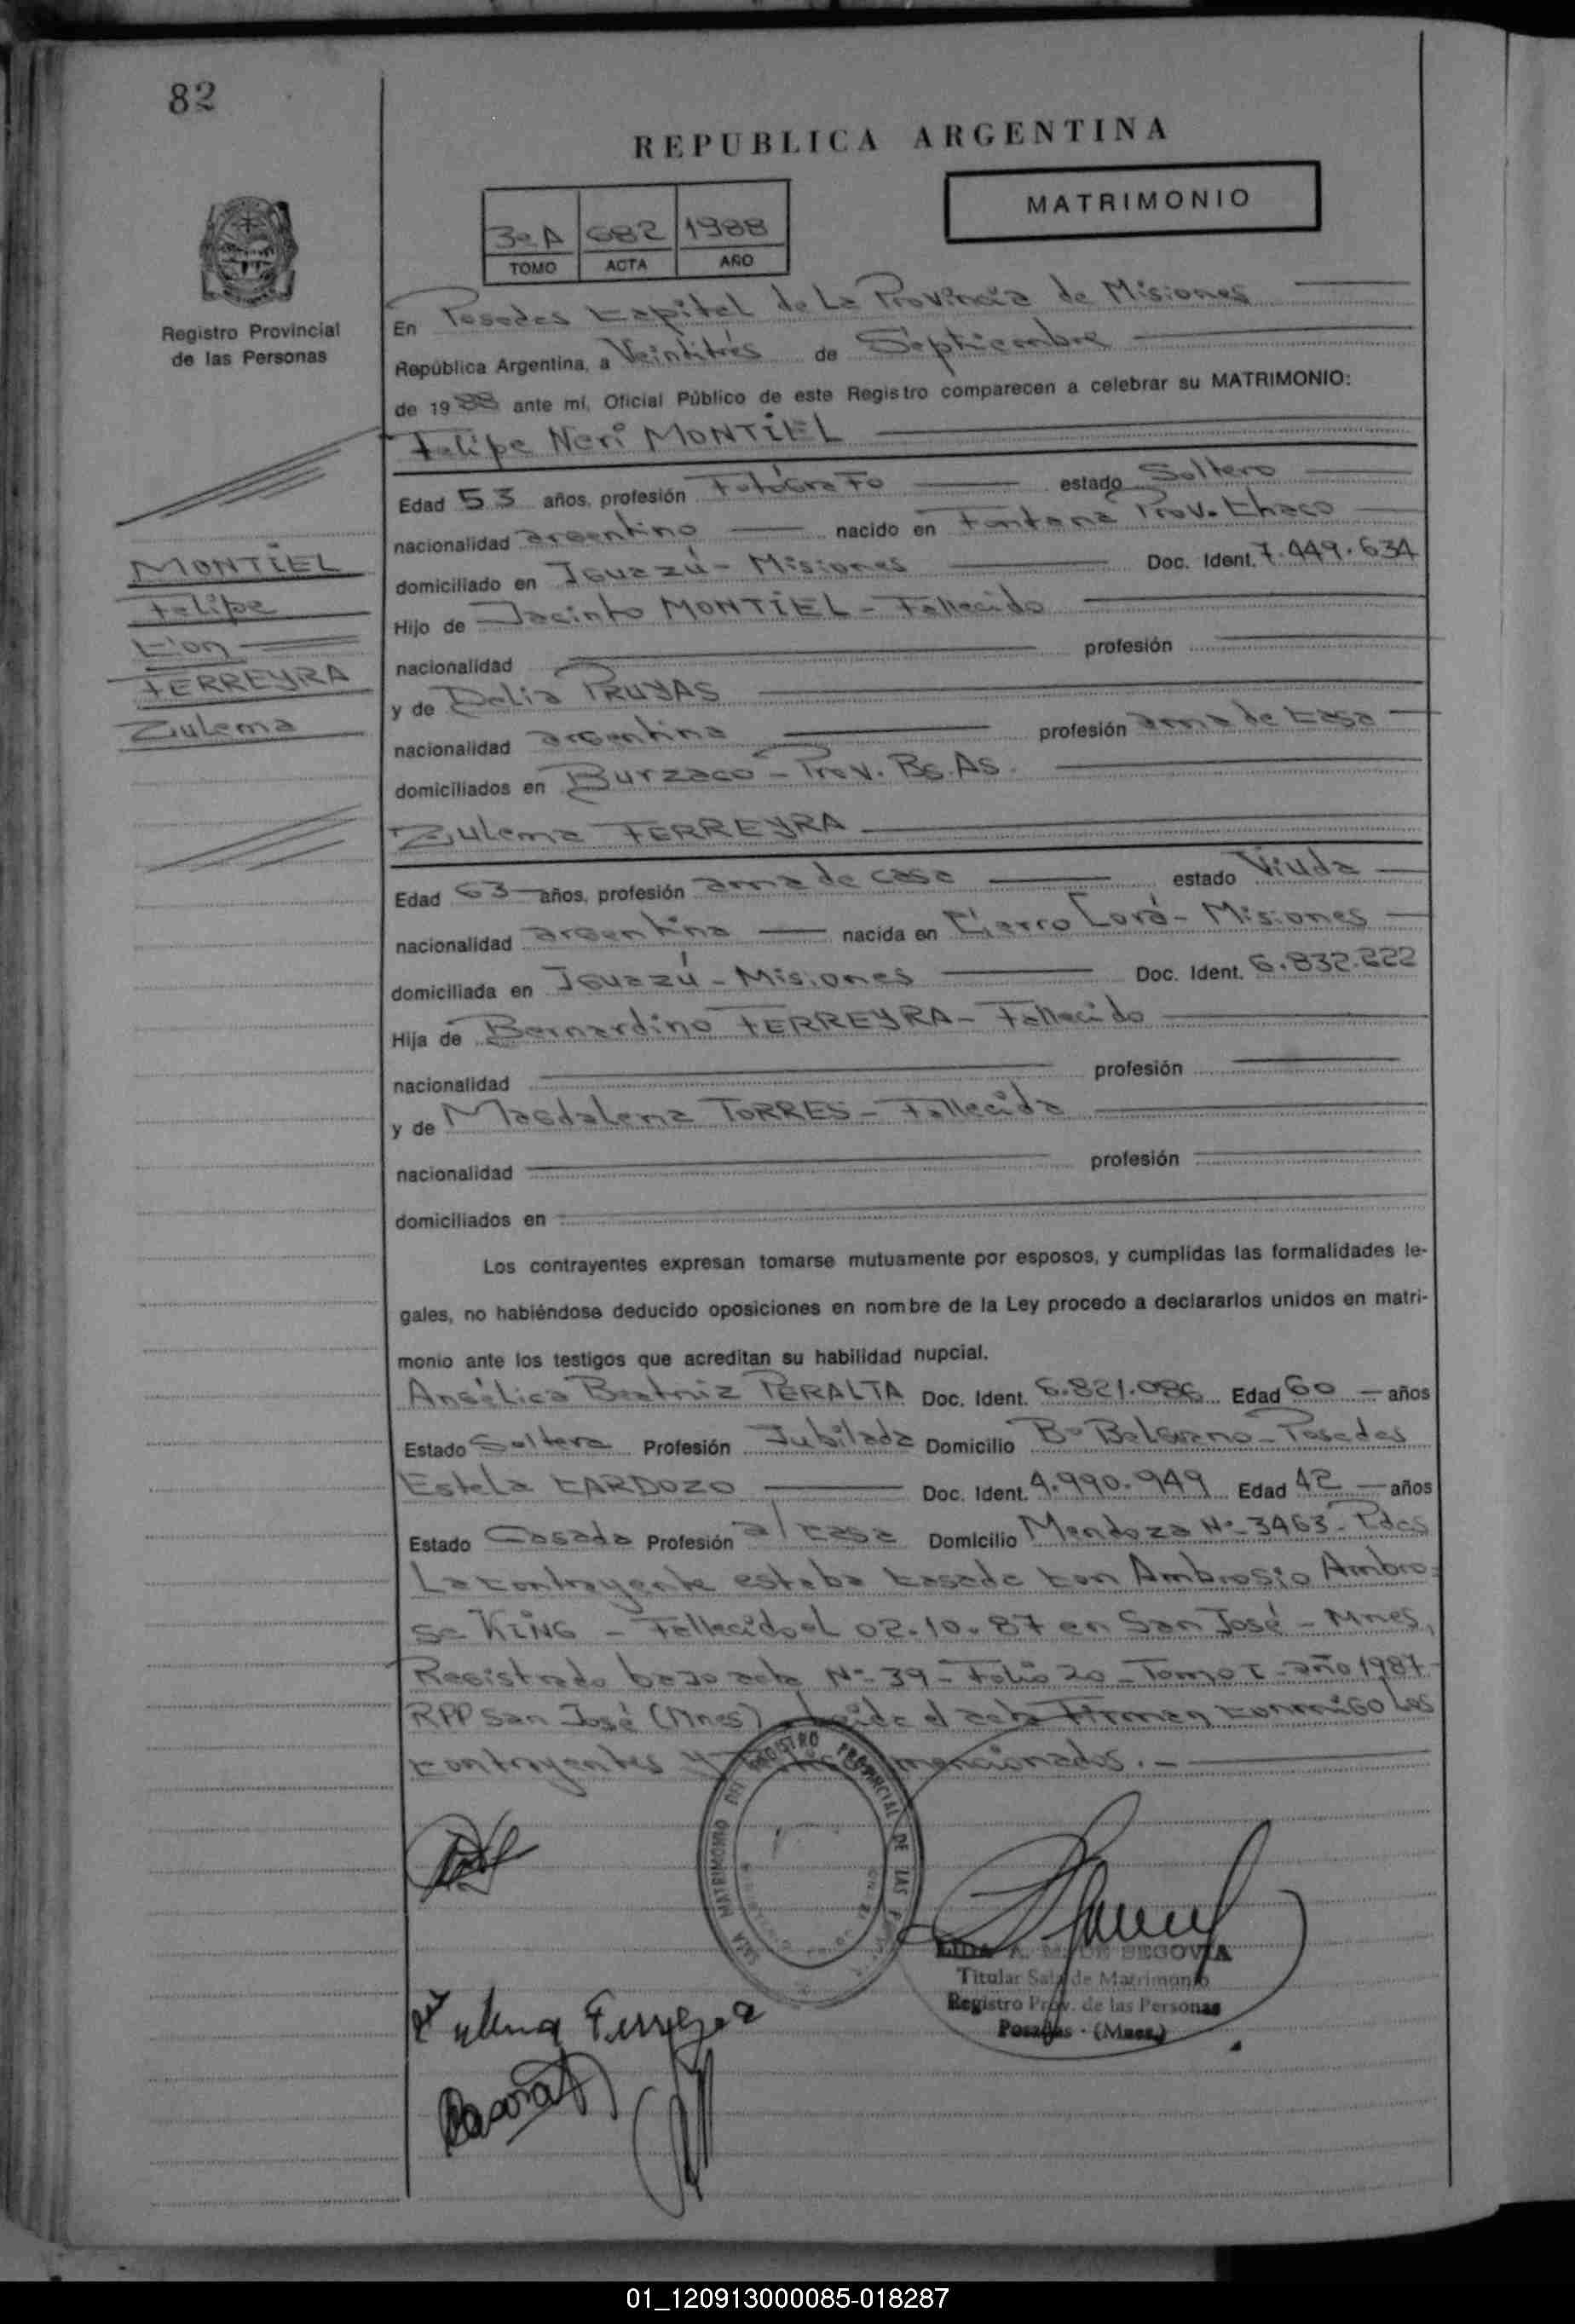 82
REPUBLICA ARGENTINA
MATRIMONIO
3º A 682 1988
TOMO ACTA AÑO
Registro Provincial
de las Personas
En Posadas Capital de La Provincia de Misiones
República Argentina, a Veintitrés de Septiembre
de 1988 ante mí, Oficial Público de este Registro comparecen a celebrar su MATRIMONIO:
Felipe Neri MONTIEL
Edad 53 años, profesión Fotógrafo estado Soltero
nacionalidad argentino nacido en Fontana Prov. Chaco
domiciliado en Iguazú - Misiones Doc. Ident. 7.449.634
Hijo de Jacinto MONTIEL - Fallecido
nacionalidad profesión
y de Delia PRUYAS
nacionalidad argentina profesión ama de casa
domiciliados en Burzaco - Prov. Bs. As.
MONTIEL
Felipe
Con
FERREYRA
Zulema
Zulema FERREYRA
Edad 63 años, profesión ama de casa estado Viuda
nacionalidad argentina nacida en Cierro Corá - Misiones
domiciliada en Iguazú - Misiones Doc. Ident. 6.832.222
Hija de Bernardino FERREYRA - Fallecido
nacionalidad profesión
y de Magdalena TORRES - Fallecida
nacionalidad profesión
domiciliados en
Los contrayentes expresan tomarse mutuamente por esposos, y cumplidas las formalidades le-
gales, no habiéndose deducido oposiciones en nombre de la Ley procedo a declararlos unidos en matri-
monio ante los testigos que acreditan su habilidad nupcial.
Angélica Beatriz PERALTA Doc. Ident. 6.821.086 Edad 60 años
Estado Soltera Profesión Jubilada Domicilio Bº Belgrano - Posadas
Estela CARDOZO Doc. Ident. 4.990.949 Edad 42 años
Estado Casada Profesión a/casa Domicilio Mendoza Nº 3463 - Pdas
La contrayente estaba casada con Ambrosio Ambro-
se KING - Fallecido el 02.10.87 en San José - Mnes,
Registrado bajo acta Nº 39 - Folio 20 - Tomo I - año 1987 -
RPP San José (Mnes) Leída el acta Firman conmigo los
contrayentes y testigos mencionados. -
SALA MATRIMONIO DEL REGISTRO PROVINCIAL DE LAS
A. M. DE SEGOVIA
Titular Sala de Matrimonio
Registro Prov. de las Personas
Posadas - (Mnes.)
Zulema Ferreyra
01_120913000085-018287